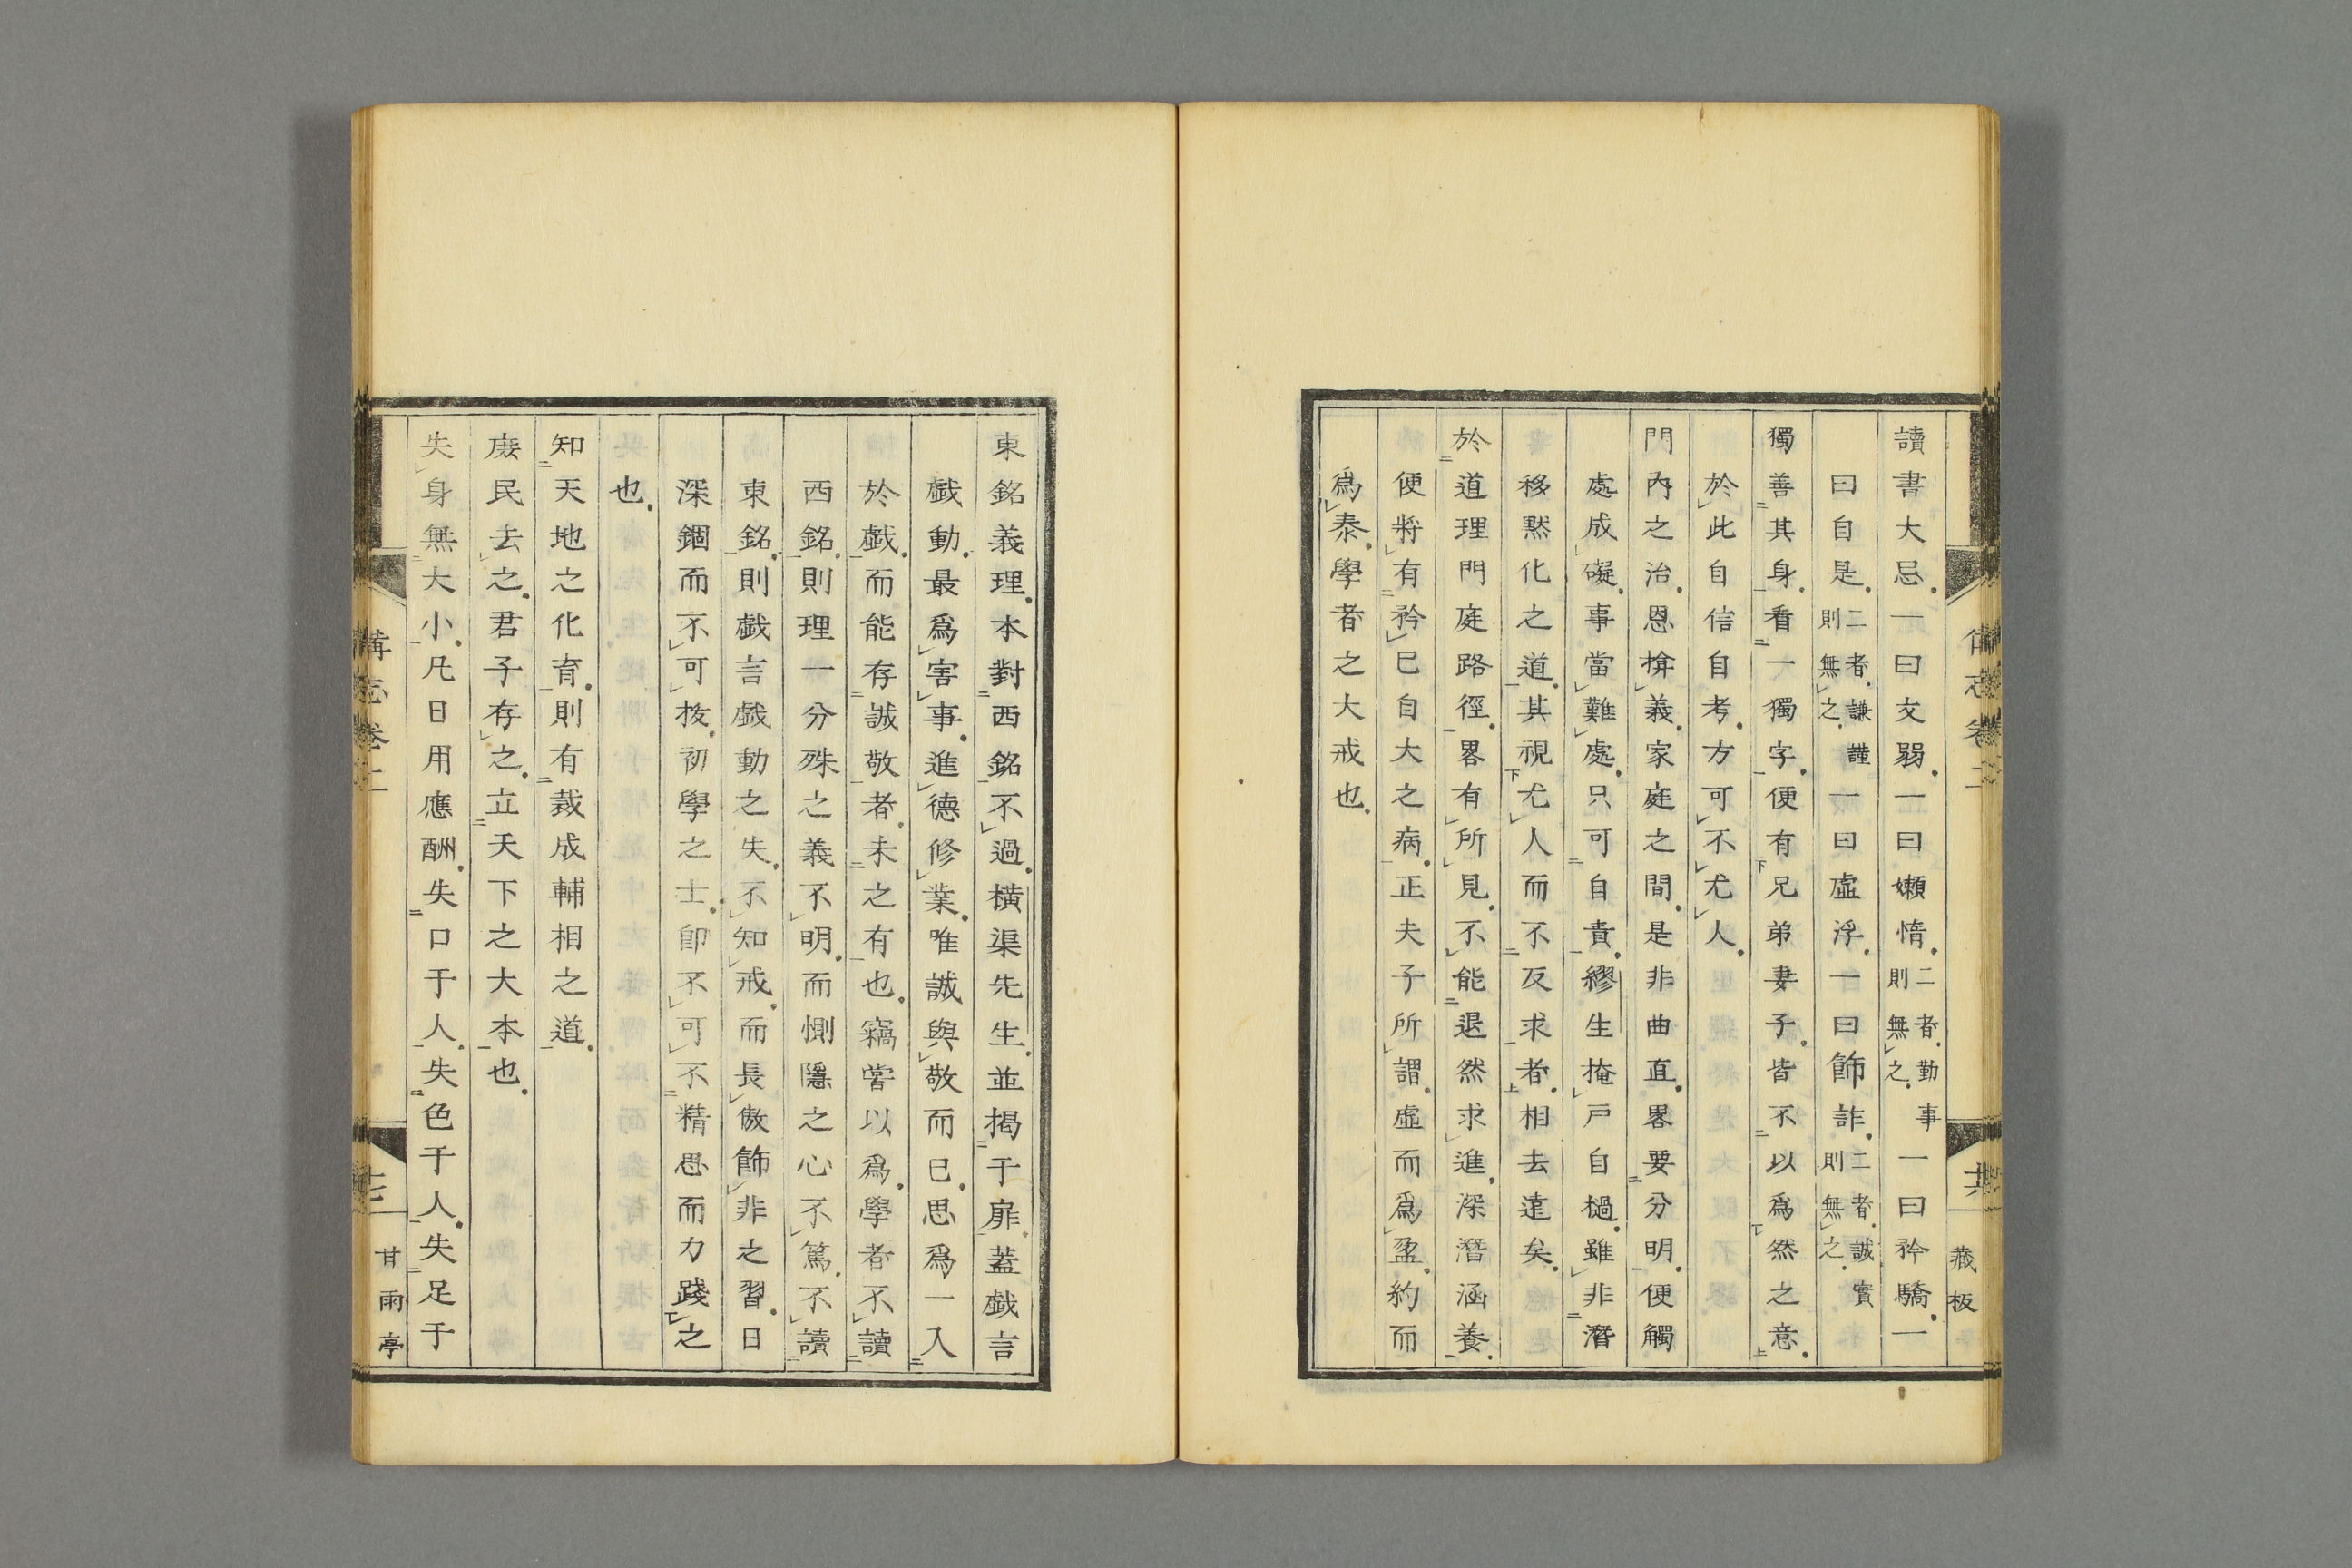 讀書大忌一曰文弱一曰嬾惰二者勤事則無之一曰矜驕一
曰自是二者謙謹則無之一曰虛浮一曰飾詐二者誠實則無之
獨善其身看一獨字便有兄弟妻子皆不以爲然之意
於此自信自考方可不尤人
門內之治恩揜義家庭之間是非曲直畧要分明便觸
處成礙事當難處只可自責繆生掩戶自檛雖非潛
移黙化之道其視尤人而不反求者相去遠矣
於道理門庭路徑畧有所見不能退然求進深潛涵養
便將有矜已自大之病正夫子所謂虛而爲盈約而
爲泰學者之大戒也
藏板
東銘義理本對西銘不過橫渠先生並揭于扉蓋戱言
戱動最爲害事進德修業唯誠與敬而已思爲一入
於戱而能存誠敬者未之有也竊嘗以爲學者不讀
西銘則理一分殊之義不明而惻隱之心不篤不讀
東銘則戱言戱動之失不知戒而長傲飾非之習日
深錮而不可拔初學之士卽不可不精思而力踐之
也
知天地之化育則有裁成輔相之道
庶民去之君子存之立天下之大本也
失身無大小凡日用應酬失口于人失色于人失足于
講志卷二
甘雨亭